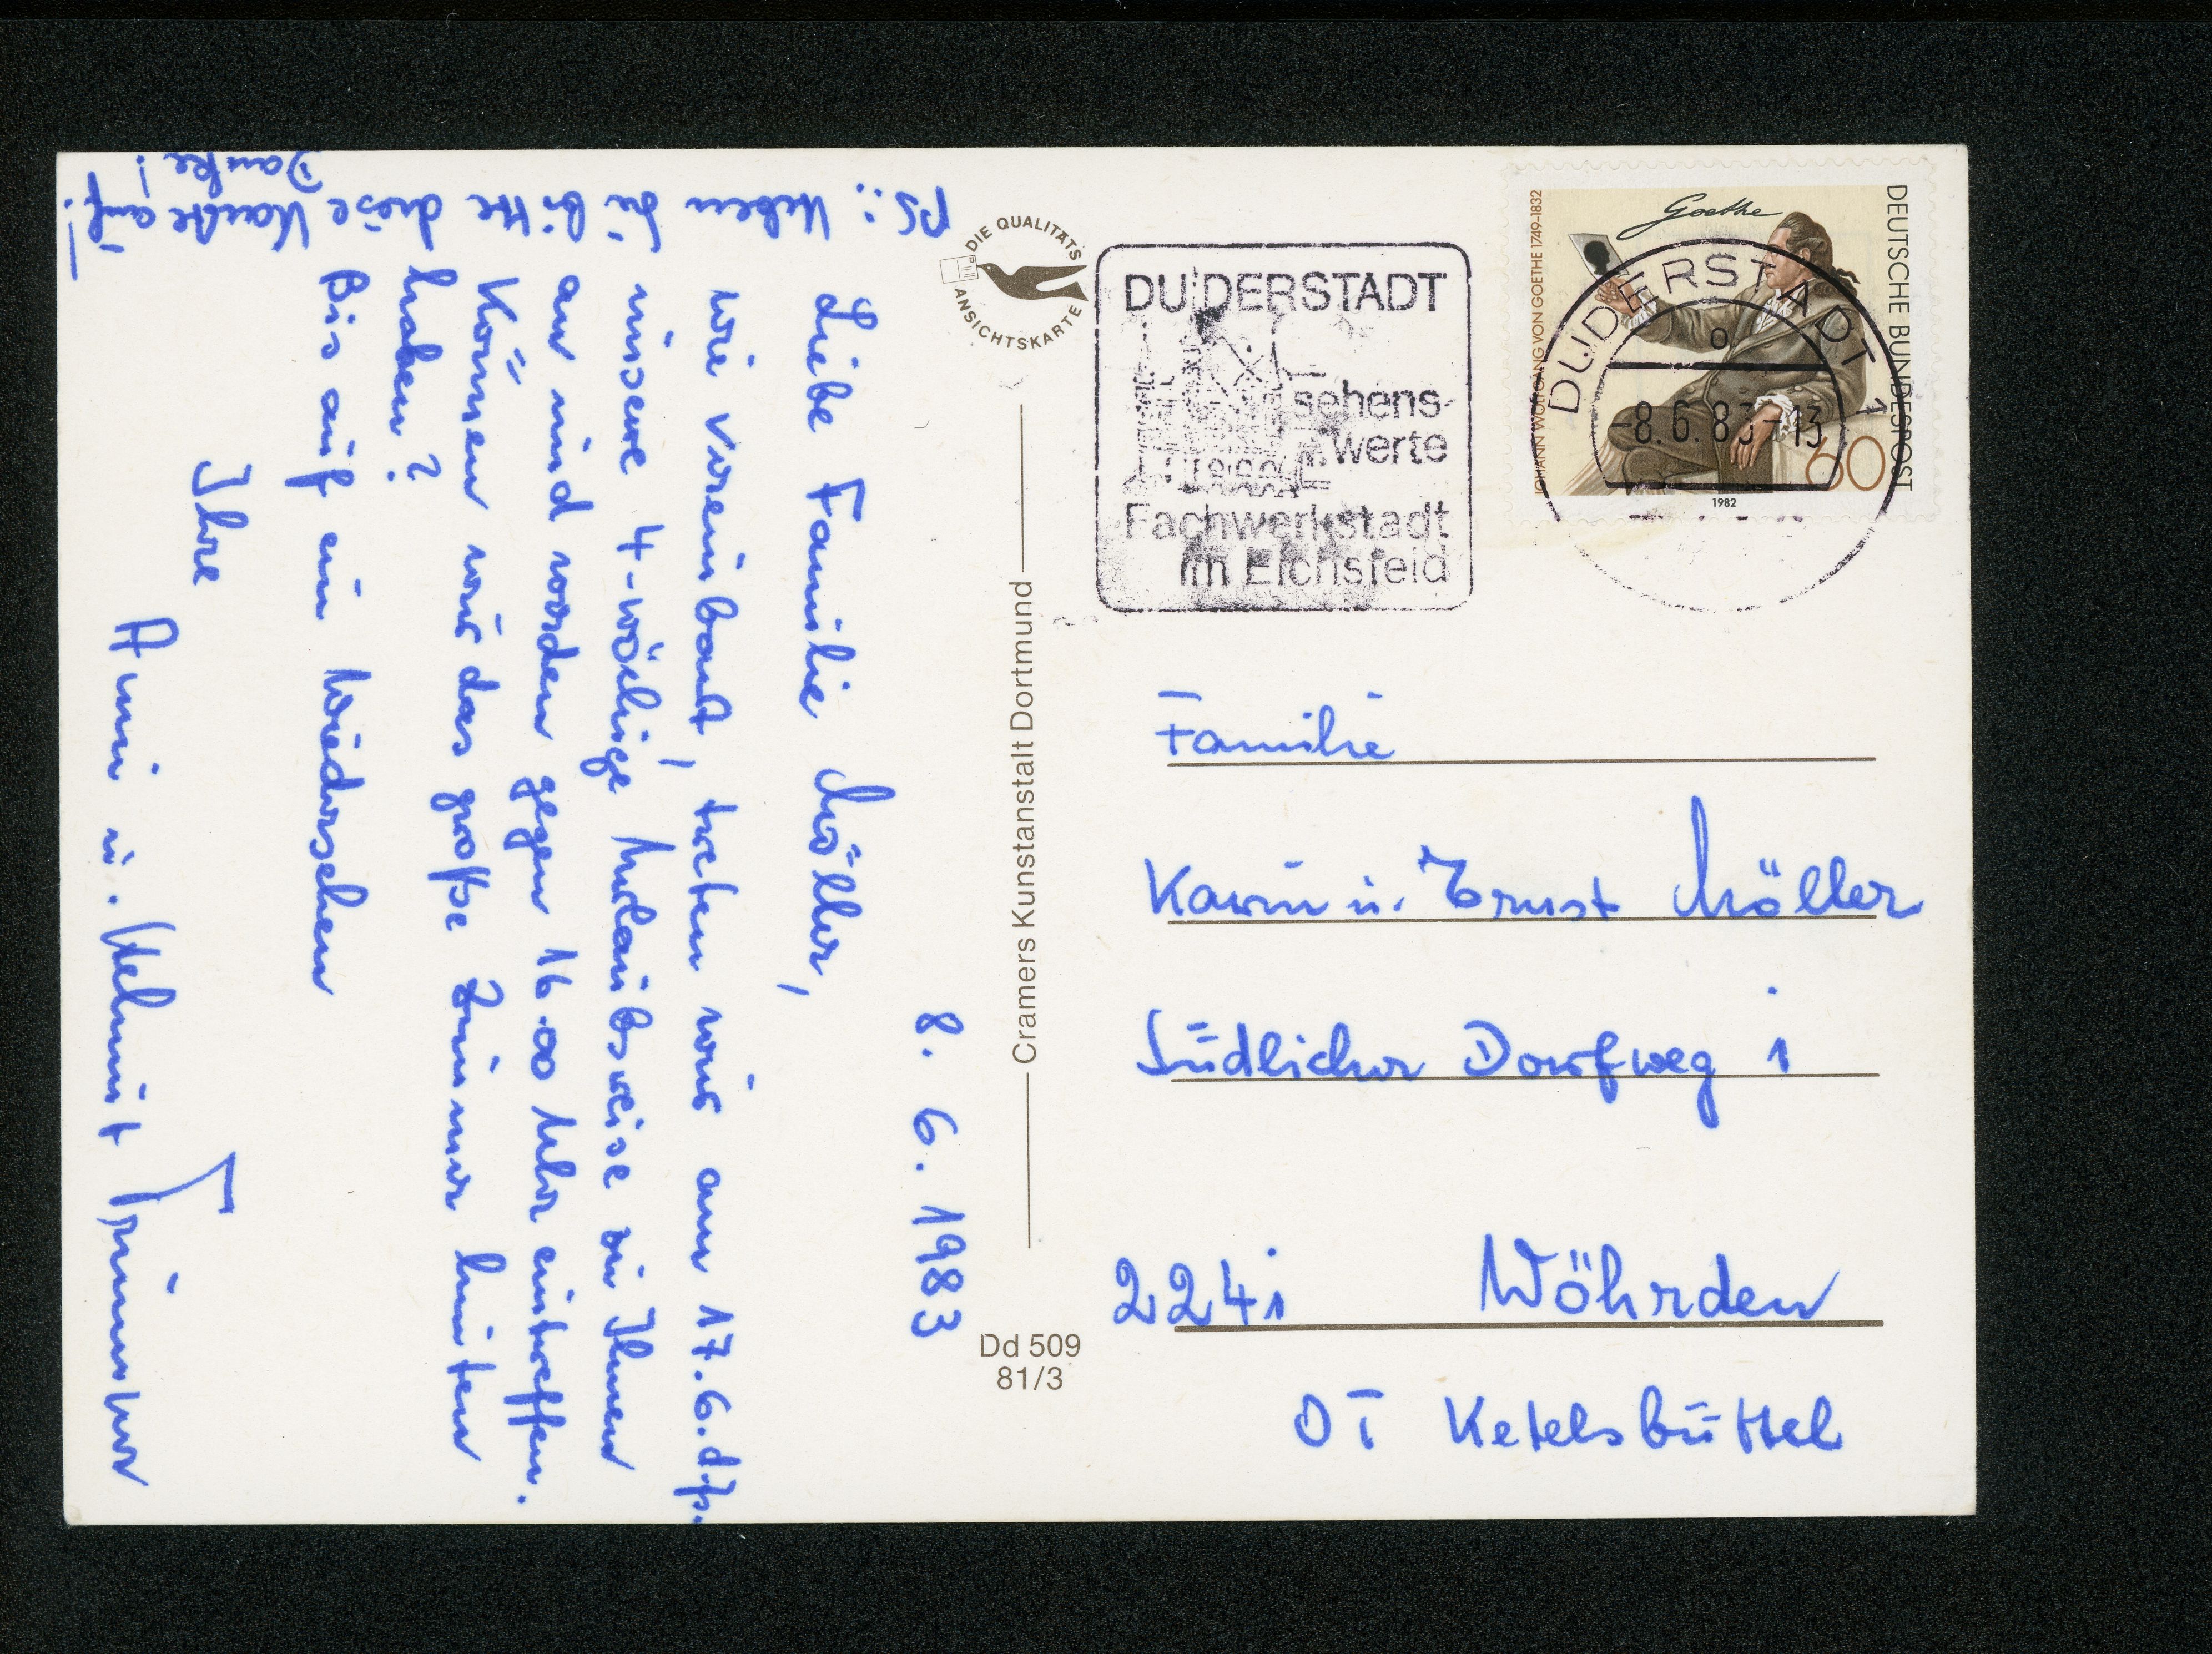 8. 6. 1983
Liebe Familie Möller,
wie vereinbart, treten wir am 17.6. d. Js.
unsere 4-wöchige Urlaubsreise zu Ihnen
an und werden gegen 16.00 Uhr eintreffen.
Können wir das große Zimmer hinten
haben?
Bis auf ein Wiedersehen
Ihre
Anni u. Helmut
PS.: Heben
Sie bitte diese Karte auf!
Danke!
DIE QUALITÄTS
ANSICHTSKARTE
Cramers Kunstanstalt Dortmund
Dd 509
81/3
DUDERSTADT
sehens-
werte
Fachwerkstadt
im Eichsfeld
Goethe
JOHANN WOLFGANG VON GOETHE 1749-1832
DEUTSCHE BUNDESPOST
60
1982
DUDERSTADT 1
-8.6.83-13
Familie
Karin u. Ernst Möller
Südlicher Dorfweg 1
2241 Wöhrden
OT Ketelsbüttel